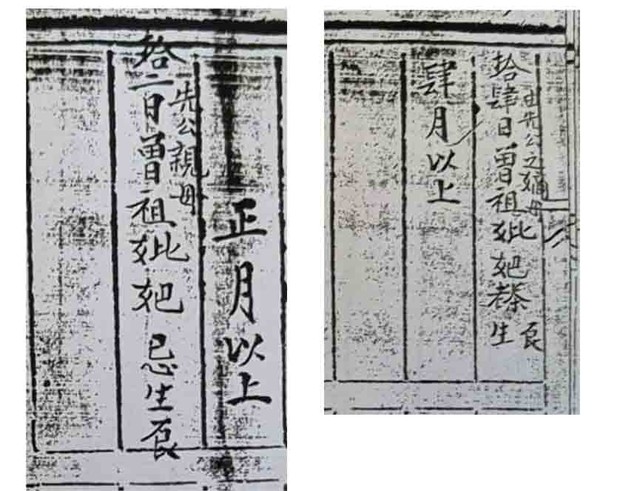 正月以上
先公親母
拾二日曾祖妣妑 忌生辰
先公之嫡母
拾肆日曾祖妣妑生辰
肆月以上